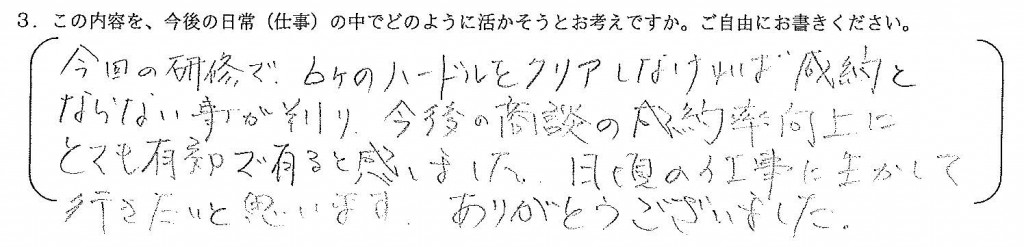 3．この内容を、今後の日常（仕事）の中でどのように活かそうとお考えですか。ご自由にお書きください。
今回の研修で、6ケのハードルをクリアしなければ成約と
ならない事が判り、今後の商談の成約率向上に
とても有効で有ると感しました。日頃の仕事に生かして
行きたいと思います。ありがとうございました。